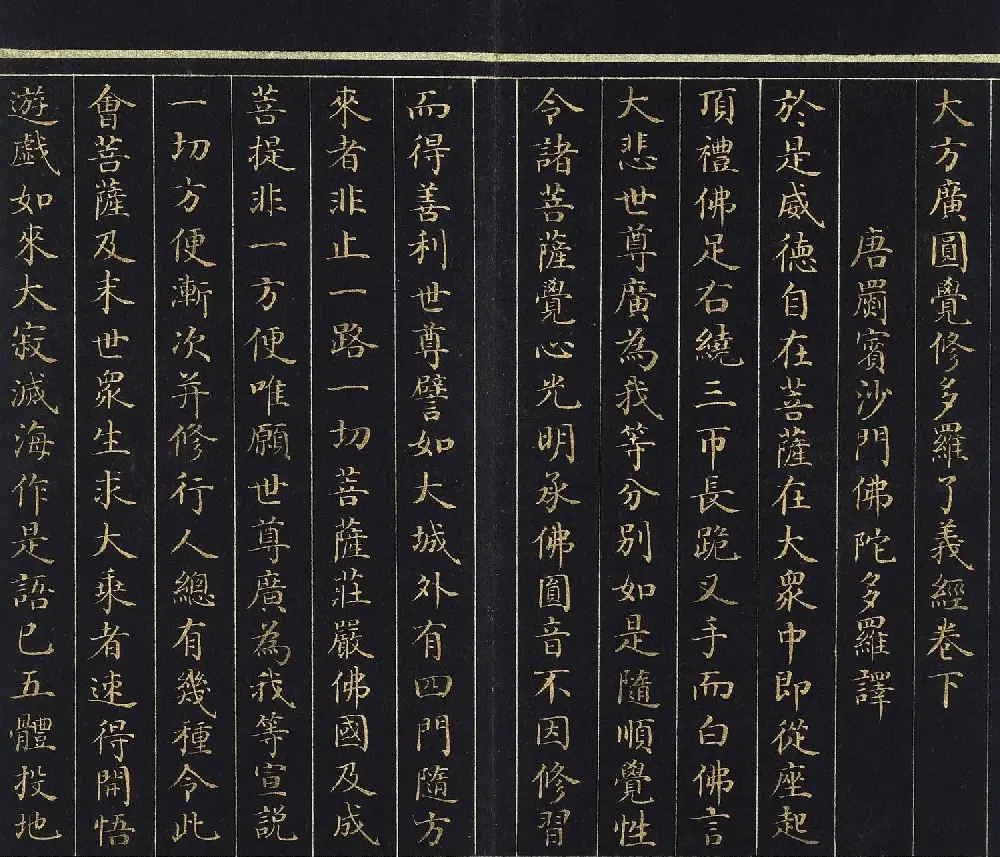 大方廣圓覺修多羅了義經卷下
唐罽賓沙門佛陀多羅譯
於是威德自在菩薩在大眾中即從座起
頂禮佛足右繞三帀長跪叉手而白佛言
大悲世尊廣為我等分別如是隨順覺性
令諸菩薩覺心光明承佛圓音不因修習
而得善利世尊譬如大城外有四門隨方
來者非止一路一切菩薩莊嚴佛國及成
菩提非一方便唯願世尊廣為我等宣説
一切方便漸次并修行人總有幾種令此
會菩薩及末世眾生求大乘者速得開悟
遊戲如來大寂滅海作是語已五體投地